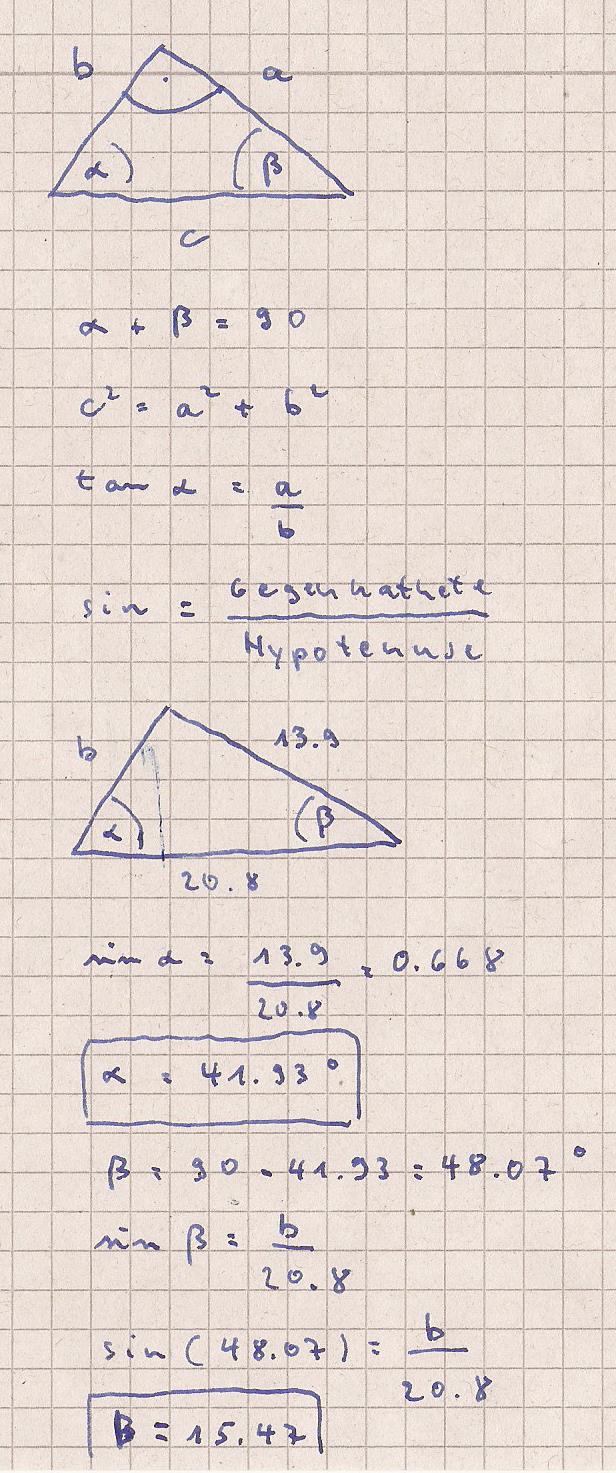 b a
α β
c
α + β = 90
c² = a² + b²
tan α = a/b
sin = Gegenkathete/Hypotenuse
b 13.9
α β
20.8
sin α = 13.9/20.8 = 0.668
α = 41.93°
β = 90 - 41.93 = 48.07°
sin β = b/20.8
sin (48.07) = b/20.8
b = 15.47